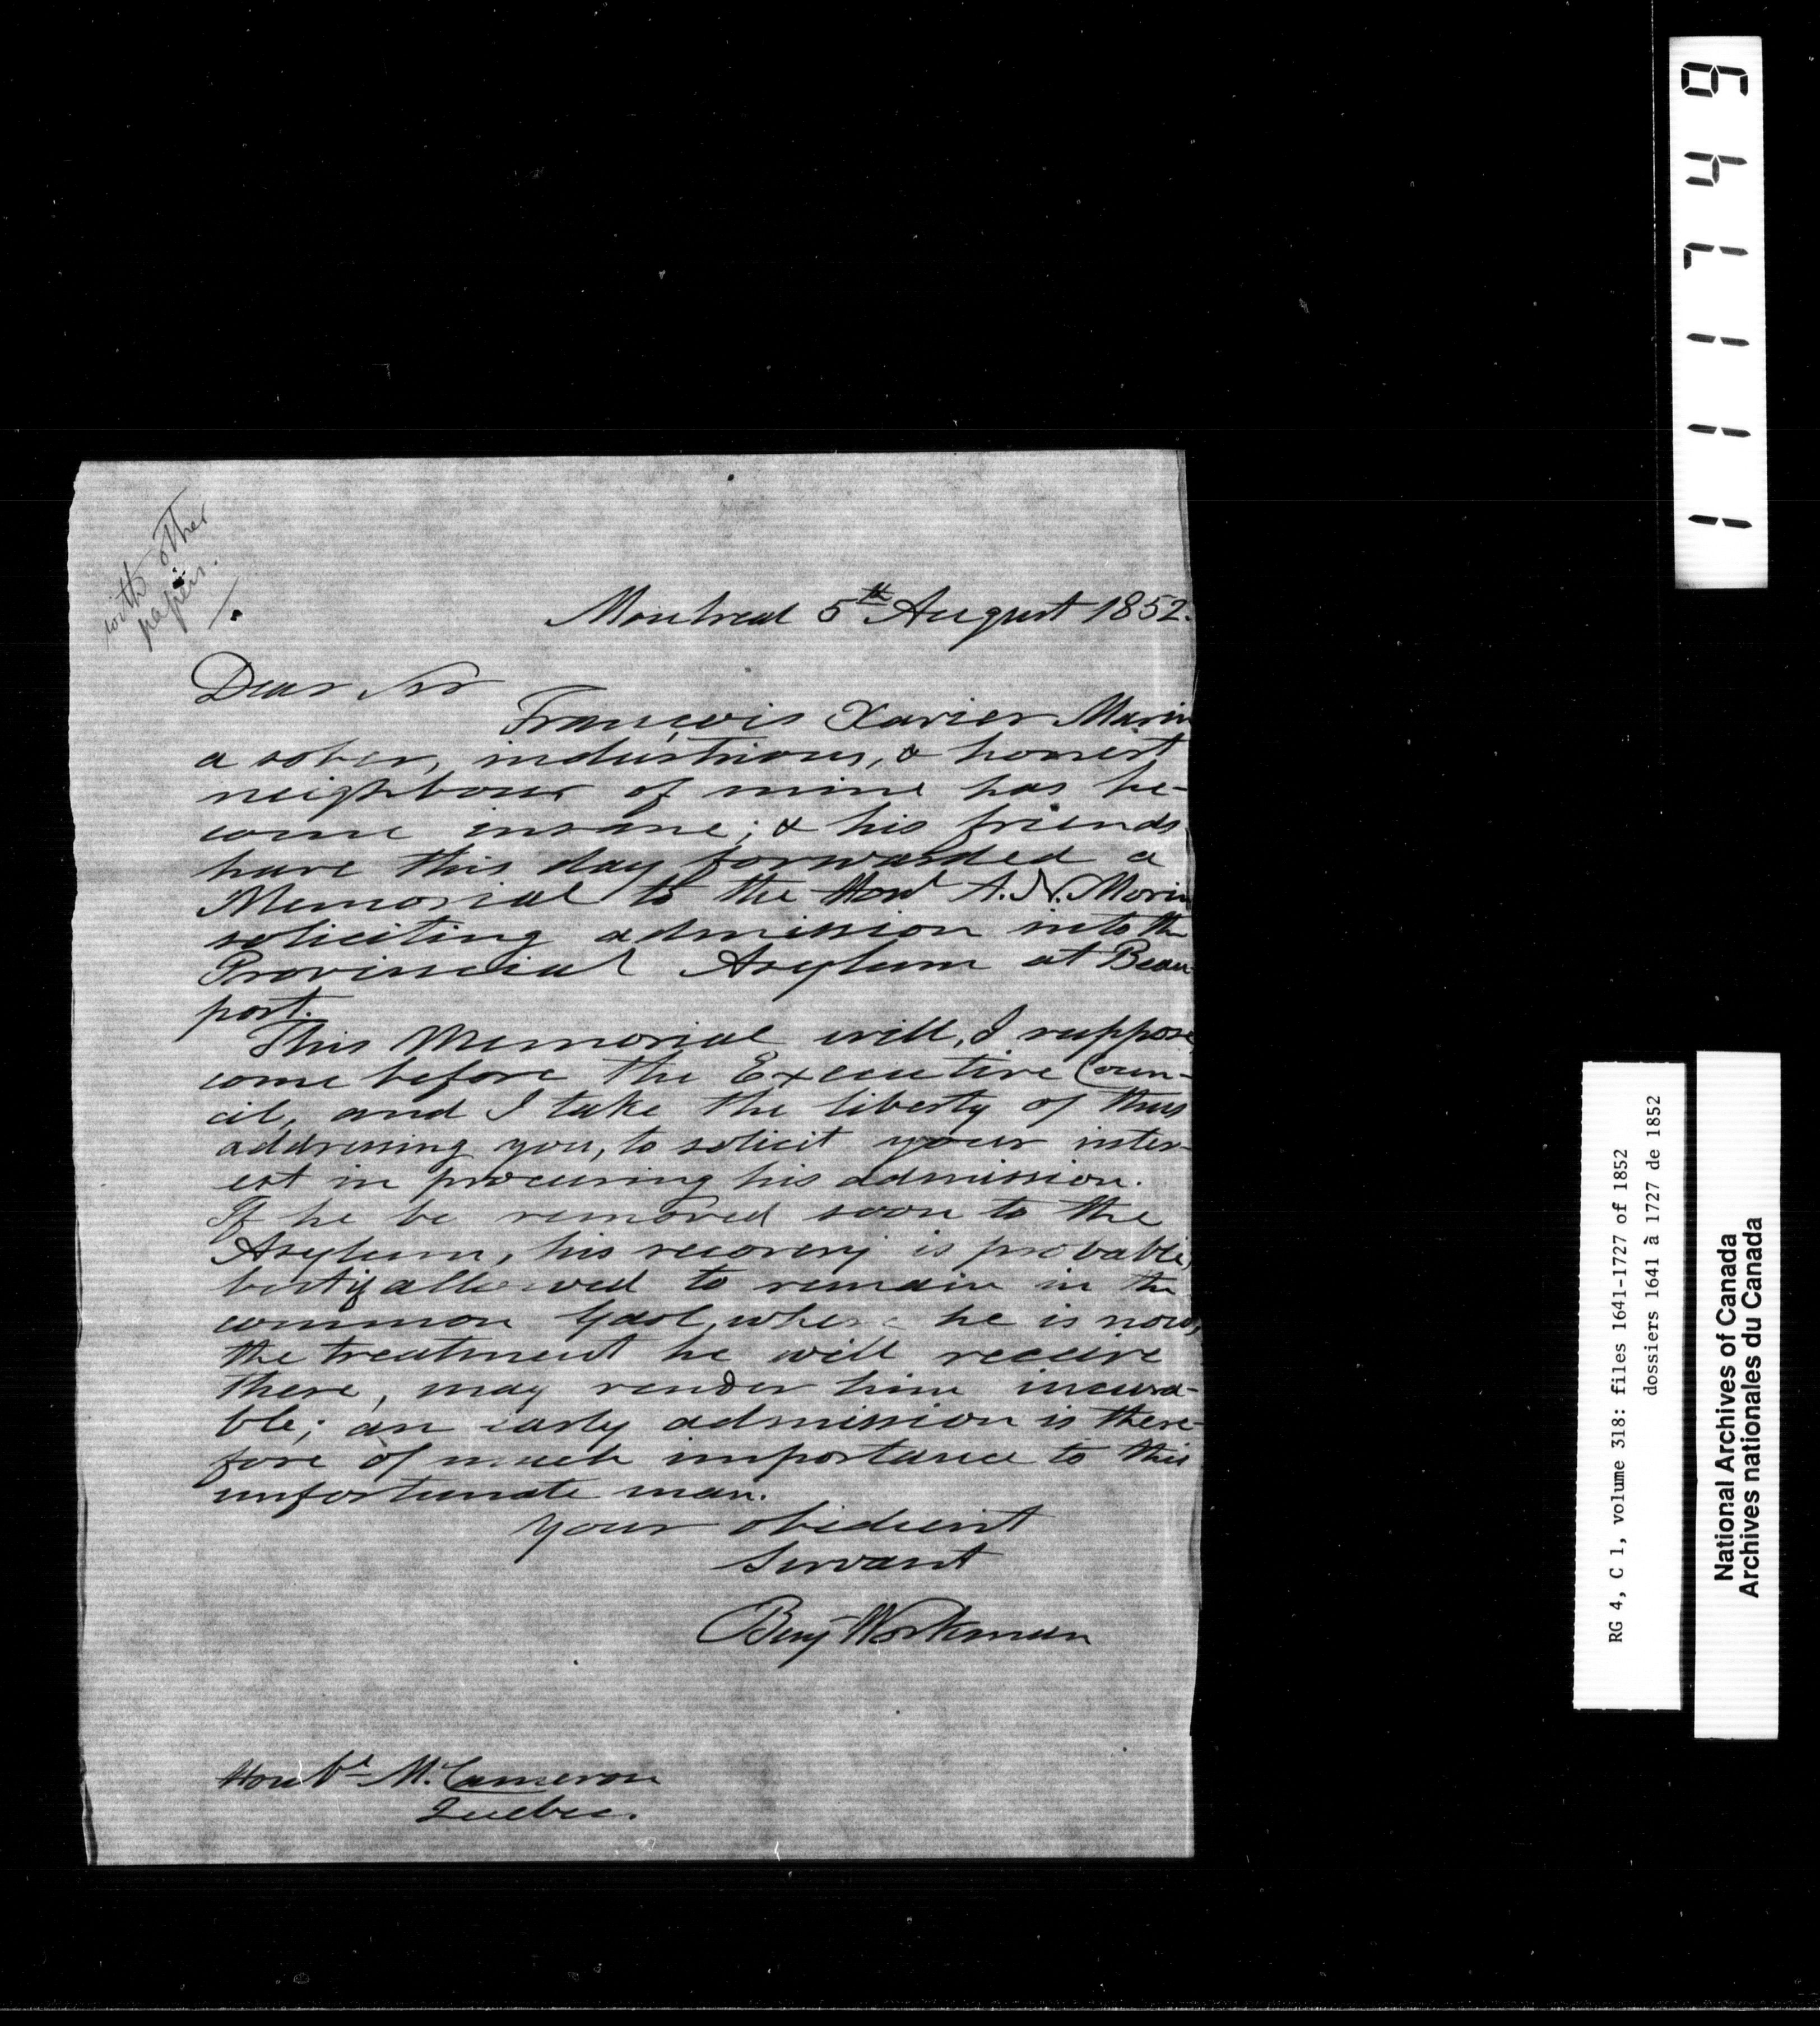 with other
papers.
Montreal 5th August 1852.
Dear Sir
François Xavier Marin
a sober, industrious, & honest
neighbour of mine has be-
come insane; & his friends
have this day forwarded a
Memorial to the Honl A. N. Morin
soliciting admission into the
Provincial Asylum at Beau-
port.
This Memorial will, I suppose,
come before the Executive Coun-
cil, and I take the liberty of thus
addressing you, to solicit your inter-
est in procuring his admission.
If he be removed soon to the
Asylum, his recovery is probable,
but if allowed to remain in the
common Gaol, where he is now,
the treatment he will receive
there, may render him incura-
ble; an early admission is there-
fore of much importance to this
unfortunate man.
Your obedient
Servant
Benj Workman
Honble M. Cameron
Quebec.
111749
RG 4, C 1, volume 318: files 1641-1727 of 1852
dossiers 1641 à 1727 de 1852
National Archives of Canada
Archives nationales du Canada